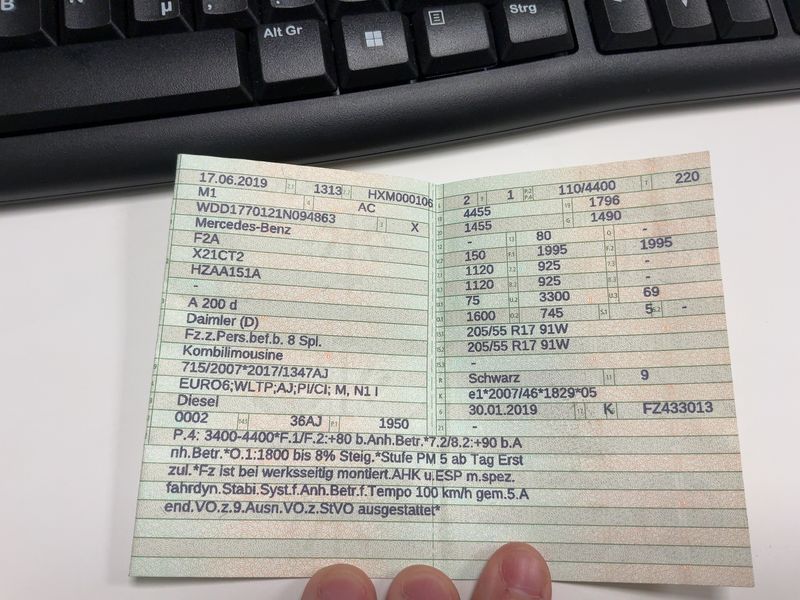 B
µ
Alt Gr
Strg
17.06.2019 2.1 1313 2.2 HXM000106
M1 AC
WDD1770121N094863 3 X
Mercedes-Benz
F2A
X21CT2
HZAA151A
-
A 200 d
Daimler (D)
Fz.z.Pers.bef.b. 8 Spl.
Kombilimousine
715/2007*2017/1347AJ
EURO6;WLTP;AJ;PI/CI; M, N1 I
Diesel
0002 14.1 36AJ P.1 1950
L 2 9 1 P.2 P.4 110/4400 T 220
18 4455 19 1796
20 1455 G 1490
12 - 13 80 Q -
V.7 150 F.1 1995 F.2 1995
7.1 1120 7.2 925 7.3 -
8.1 1120 8.2 925 8.3 -
U.1 75 U.2 3300 U.3 69
O.1 1600 O.2 745 S.1 5 S.2 -
15.1 205/55 R17 91W
15.2 205/55 R17 91W
15.3 -
R Schwarz 11 9
K e1*2007/46*1829*05
6 30.01.2019 17 K 16 FZ433013
21 -
P.4: 3400-4400*F.1/F.2:+80 b.Anh.Betr.*7.2/8.2:+90 b.A
nh.Betr.*O.1:1800 bis 8% Steig.*Stufe PM 5 ab Tag Erst
zul.*Fz ist bei werksseitig montiert.AHK u.ESP m.spez.
fahrdyn.Stabi.Syst.f.Anh.Betr.f.Tempo 100 km/h gem.5.A
end.VO.z.9.Ausn.VO.z.StVO ausgestattet*